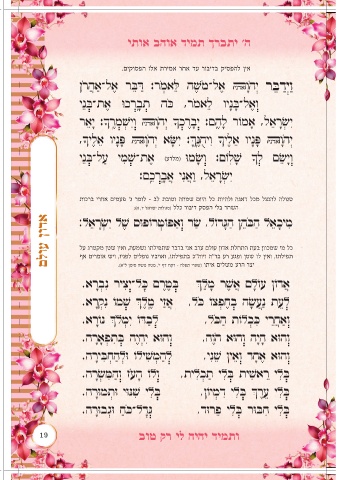 ה' יתברך תמיד אוהב אותי
אין להפסיק בדיבור עד אחר אמירת אלו הפסוקים.
וַיְדַבֵּר יְהֹוָה אֶל־מֹשֶׁה לֵּאמֹר: דַּבֵּר אֶל־אַהֲרֹן
וְאֶל־בָּנָיו לֵאמֹר, כֹּה תְבָרְכוּ אֶת־בְּנֵי
יִשְׂרָאֵל, אָמוֹר לָהֶם: יְבָרֶכְךָ יְהֹוָה וְיִשְׁמְרֶךָ: יָאֵר
יְהֹוָה פָּנָיו אֵלֶיךָ וִיחֻנֶּךָּ: יִשָּׂא יְהֹוָה פָּנָיו אֵלֶיךָ,
וְיָשֵׂם לְךָ שָׁלוֹם: וְשָׂמוּ אֶת־שְׁמִי עַל־בְּנֵי
יִשְׂרָאֵל, וַאֲנִי אֲבָרְכֵם:
מִיכָאֵל הַכֹּהֵן הַגָּדוֹל, שַׂר וְאַפּוֹטְרוֹפּוֹס שֶׁל יִשְׂרָאֵל:
אדון עולם
אֲדוֹן עוֹלָם אֲשֶׁר מָלַךְ בְּטֶרֶם כָּל־יְצִיר נִבְרָא.
לְעֵת נַעֲשָׂה בְחֶפְצוֹ כֹּל, אֲזַי מֶלֶךְ שְׁמוֹ נִקְרָא.
וְאַחֲרֵי כִּכְלוֹת הַכֹּל, לְבַדּוֹ יִמְלֹךְ נוֹרָא.
וְהוּא הָיָה וְהוּא הֹוֶה, וְהוּא יִהְיֶה בְּתִפְאָרָה.
וְהוּא אֶחָד וְאֵין שֵׁנִי, לְהַמְשִׁילוֹ וּלְהַחְבִּירָה.
בְּלִי רֵאשִׁית בְּלִי תַכְלִית, וְלוֹ הָעֹז וְהַמִּשְׂרָה.
בְּלִי עֵרֶךְ בְּלִי דִמְיוֹן, בְּלִי שִׁנּוּי וּתְמוּרָה.
בְּלִי חִבּוּר בְּלִי פֵרוּד, גְּדָל־כֹּחַ וּגְבוּרָה.
19
ותמיד יהיה לי רק טוב